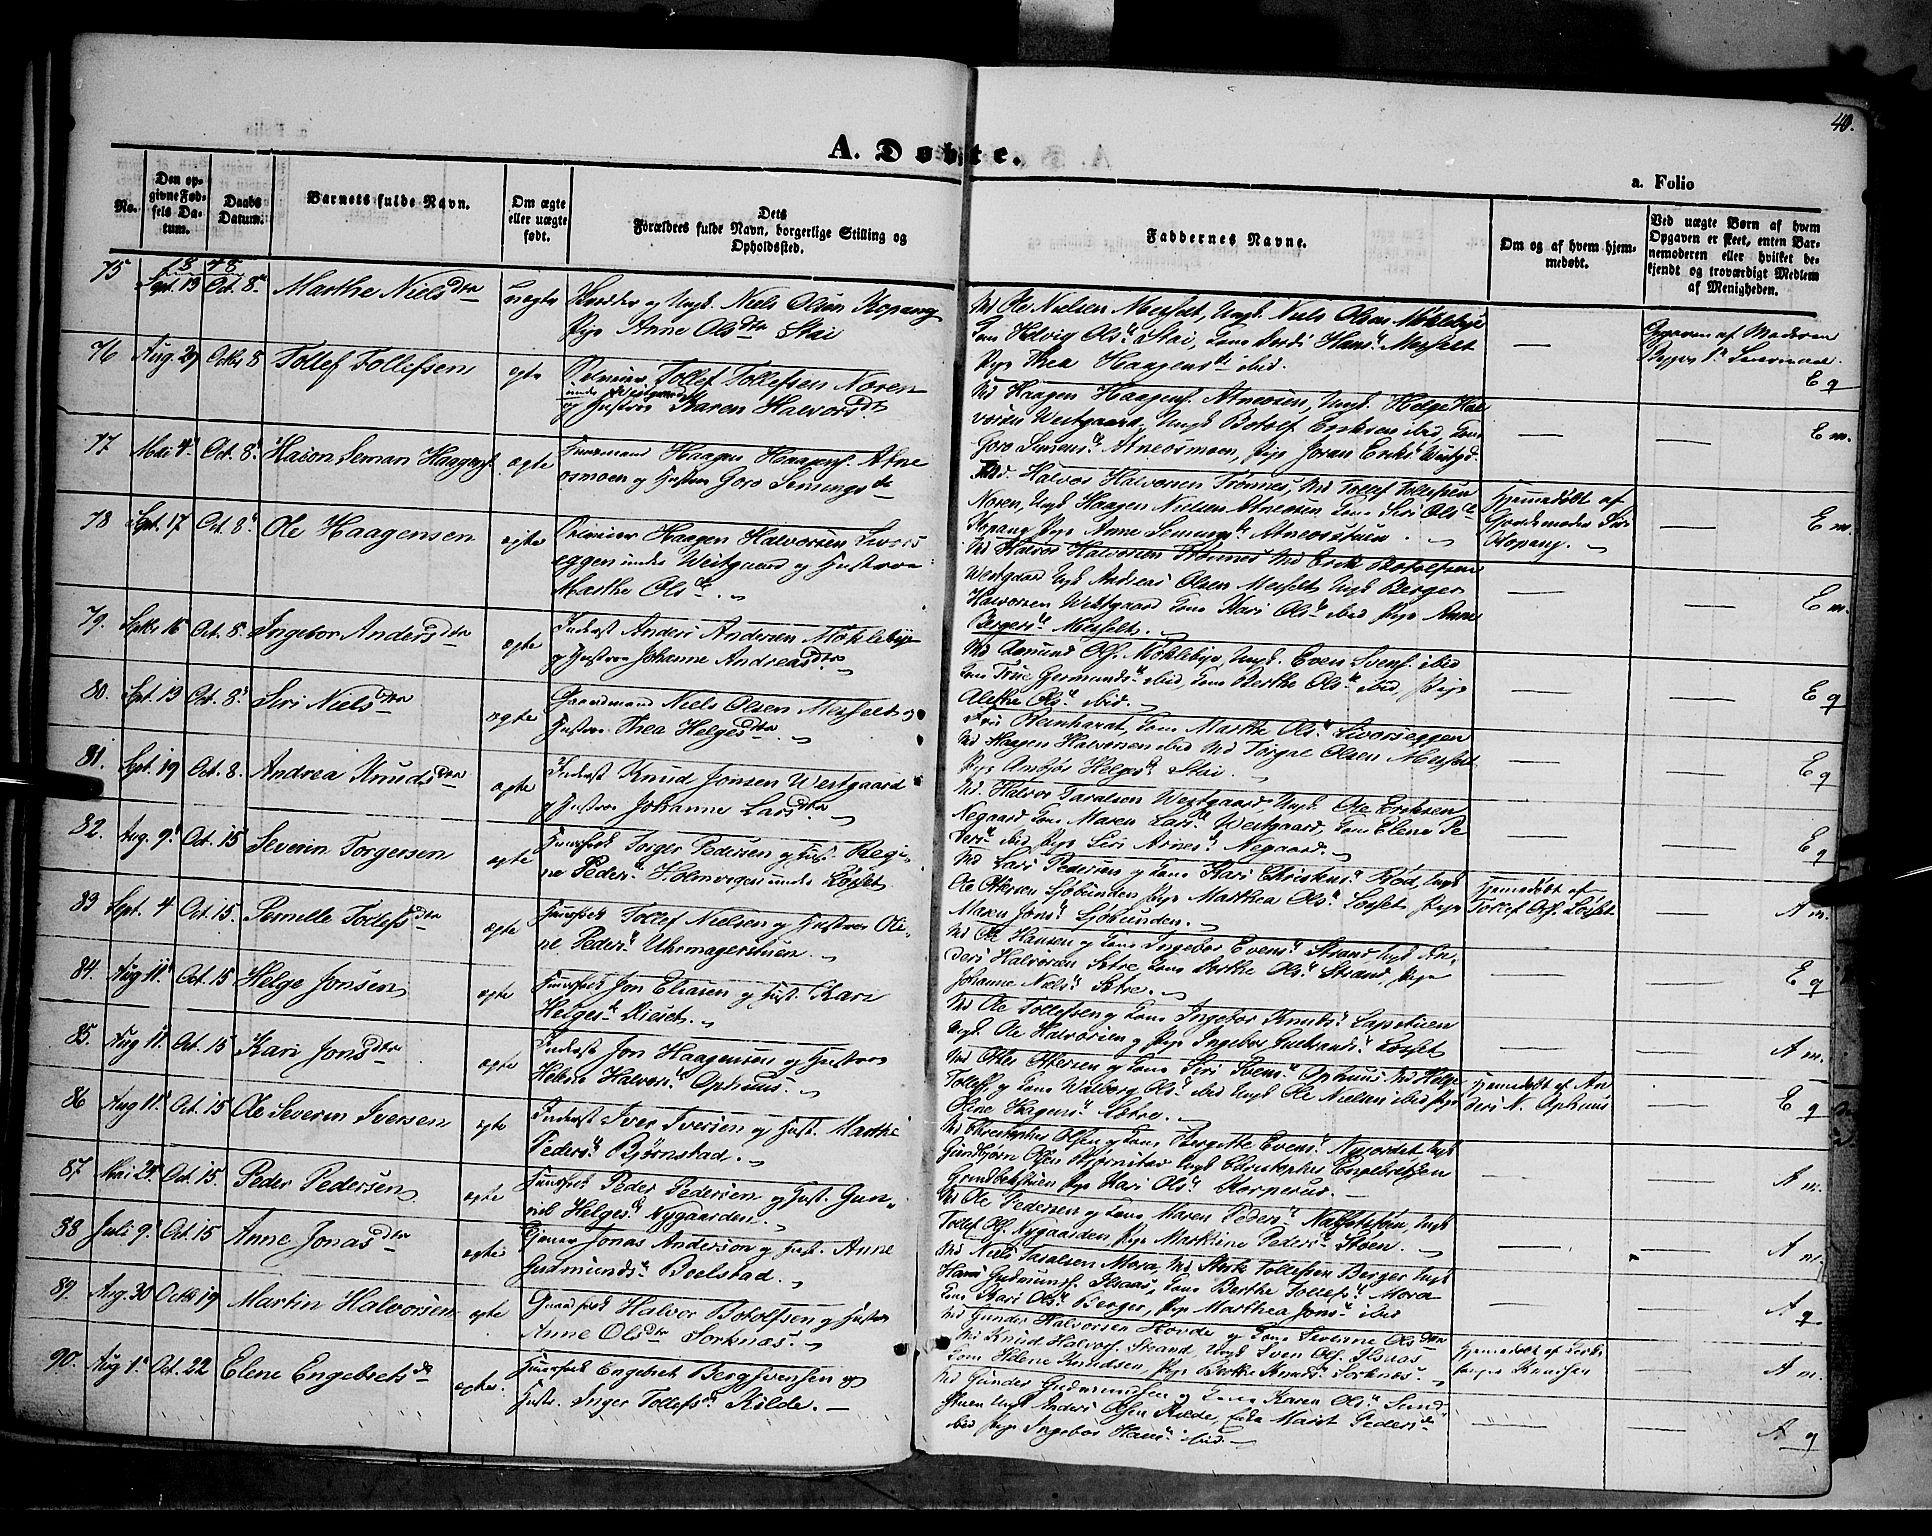 40.
A. Døbte.
a. Folio
No.
Den op-
givne Fød-
sels Da-
tum.
Daabs
Datum.
Barnets fulde Navn.
Om ægte
eller uægte
født.
Dets
Forældres fulde Navn, borgerlige Stilling og
Opholdssted.
Faddernes Navne.
Om og af hvem hjem-
medøbt.
Ved uægte Børn af hvem
Opgaven er skeet, enten Bar-
nemoderen eller hvilket be-
kjendt og troværdigt Medlem
af Menigheden.
1848
75 Sept. 13 Oct. 8. Marthe Nielsdtr uægte Ungk. Niels Olsen Kopang
Pige Anne Olsdtr Stai
Ole Nielsen Messelt, Ungk. Niels Olsen Møklebye
Hedvig Olsd. Stai, Hansd. Messelt
Pige Thea Haagensd. ibid.
—
Opgaven af Moderen
E g
76 Aug. 29 Octbr 8 Tollef Tollefsen ægte Tollef Tollefsen Noren
under Westgaard
og Hustroe Karen Halvorsdt
Haagen Haagens. Atneosen, Ungk. Helge Hal
vorsen Westgaard, Ungk. Botolf Eriksen ibid, Kone
Goro Simensd. Atneosmoen, Pige Joran Eriksd. Westgd.
— — E m.
77 Mai 4 Oct. 8. Haagens. ægte Huusmand Haagen Haagens. Atne
osmoen og Hustroe Goro
Halvor Halvorsen Trønnes, Tollef Tollefsen
Noren, Ungk. Haagen Nielsen Atneosen Kone Siri Olsd.
Kopang Pige Anne Atneosstuen
Hjemmedøbt af
Siri
Kopang.
— E m.
78 Sept. 17 Oct. 8 Ole Haagensen ægte Haagen Halvorsen Livors
eggen under Westgaard og Hustroe
Marthe Olsd.
Halvor Halvorsen Trønnes Erik Botolfsen
Westgaard Ungk. Andreas Olsen Messelt Ungk. Berger
Halvorsen Westgaard Kone Kari Olsd. ibid Pige Anne
Bergersd. Messelt.
— — E m.
79. Septbr 16 Oct. 8. Ingebor Andersdtr ægte Inderst Anders Andersen Møklebye
og Hustroe Johanne Andreasdtr.
Amund Ols. Møklebye, Ungk. Even Svens. ibid
Kone Trine Germundsd. ibid, Kone Berthe Olsd. ibid, Pige
Alethe Olsd. ibid.
— — E g
80. Sept. 13 Oct. 8. Siri Nielsdtr ægte Gaardmand Niels Olsen Messelt og
Hustroe Thea Helgesdtr.
Fru Reinhardt, Kone Marthe Olsd. Livorseggen
Haagen Halvorsen ibid Torgne Olsen Messelt
Pige Anbjør Helgesd. Stai.
— — E g
81. Sept. 19 Oct. 8. Andrea Knudsdtr ægte Inderst Knud Jonsen Westgaard
og Hustroe Johanne Larsdtr.
Halvor Taralsen Westgaard Ungk. Ole Eriksen
Negaard Kone Maren Larsd. Westgaard, Kone Elene Pe
dersd. ibid Pige Siri Arnesd. Negaard.
— — E g
82. Aug. 9. Oct. 15 Severin Torgersen ægte Torger Pedersen og Hust. Regi-
ne Pedersd. Holmvigen under Løsset
Lars Pedersen og Kone Kari Christensd. Kiød, Ungk
Ole Ottersen Sjøbunden Pige Marthea Olsd. Løsset Pige
Maren Jonsd. Sjøbunden.
Hjemmedøbt af
Tollef Ols. Løsset
— A m.
83 Sept. 4 Oct. 15. Pernille Tollefsdtr ægte Tollef Nielsen og Hustroe Oli-
ne Pedersd. Uhrmagerstuen
Ole Hansen og Kone Ingebor Evensd. Strand Ungk. An-
ders Halvorsen Sætre Kone Berthe Olsd. Strand, Pige
Johanne Nielsd. Sætre.
— — E g
84. Aug 11. Oct. 15 Helge Jonsen ægte Jon Eliasen og Hust. Kari
Helgesd. Dieset.
Ole Tollefsen og Kone Ingebor Knudsd. Lapstuen
Ungk. Ole Halvorsen og Pige Ingebor Gulbrandsd. Løsset
— — A m.
85. Aug 11. Oct. 15 Kari Jonsdtr ægte Inderst Jon Haagensen og Hustroe
Helene Halvorsd. Ophuus.
Otter Ottersen og Kone Siri Svensd. Ophuus Helge
Tollefs. og Kone Walborg Olsd. ibid Ungk Ole Nielsen ibid Pige
Oline Haagensd. Sætre.
Hjemmedøbt af An
ders N. Ophuus
— E g
86 Aug 11. Oct. 15 Ole Severin Iversen ægte Inderst Iver Iversen og Hust. Marthe
Pedersd. Bjørnstad.
Christopher Olsen og Kone Bergette Evensd. Nysordet Ungk
Gundbjørn Olsen Bjørnstad Ungk Christopher Engebretsen
Grundbekstuen Pige Kari Olsd. Korperud.
— — A m.
87. Mai 25. Oct. 15. Peder Pedersen ægte Peder Pedersen og Hust. Gun-
nil Helgesd. Nygaarden.
Ole Pedersen og Kone Maren Pedersd. Ungk
Tollef Ols. Nygaarden Pige Marthine Pedersd. Støen.
— — A m.
88 Juli 9. Oct. 15 Anne Jonasdtr ægte Gaardbr Jonas Anderson og Hust. Anne
Gudmundsd. Bolstad.
Niels Taralsen Mora, Tollefsen Berger Ungk
Hans Gudmunds. Ilsaas, Kone Berthe Tollefsd. Mora
Kone Kari Olsd. Berger, Pige Marthea Jonsd. ibid
— — A g
89. Aug. 30 Octbr 19 Martin Halvorsen ægte Halvor Botolfsen og Hustroe
Anne Olsdtr Sorknæs.
Gunder Halvorsen Hovde og Kone Severine Olsdtr
Knud Halvors. Strand, Ungk Sven Ols. Ilsaas
Kone Helene Knudsen, Pige Berthe Knudsd. Sorknæs.
Hjemmedøbt af
Knudsen
— A m.
90. Aug 1. Oct. 22 Elene Engebretsd ægte Engebret Bergsvensen og
Hustr. Inger Tollefsd. Kilde. —
Gunder Gudmundsen og Kone Karen Olsd. Sund
stuen Ungk Anders Olsen Kilde, Enke Marit Pedersd
ibid Pige Ingebor Hansd. ibid.
— — A g